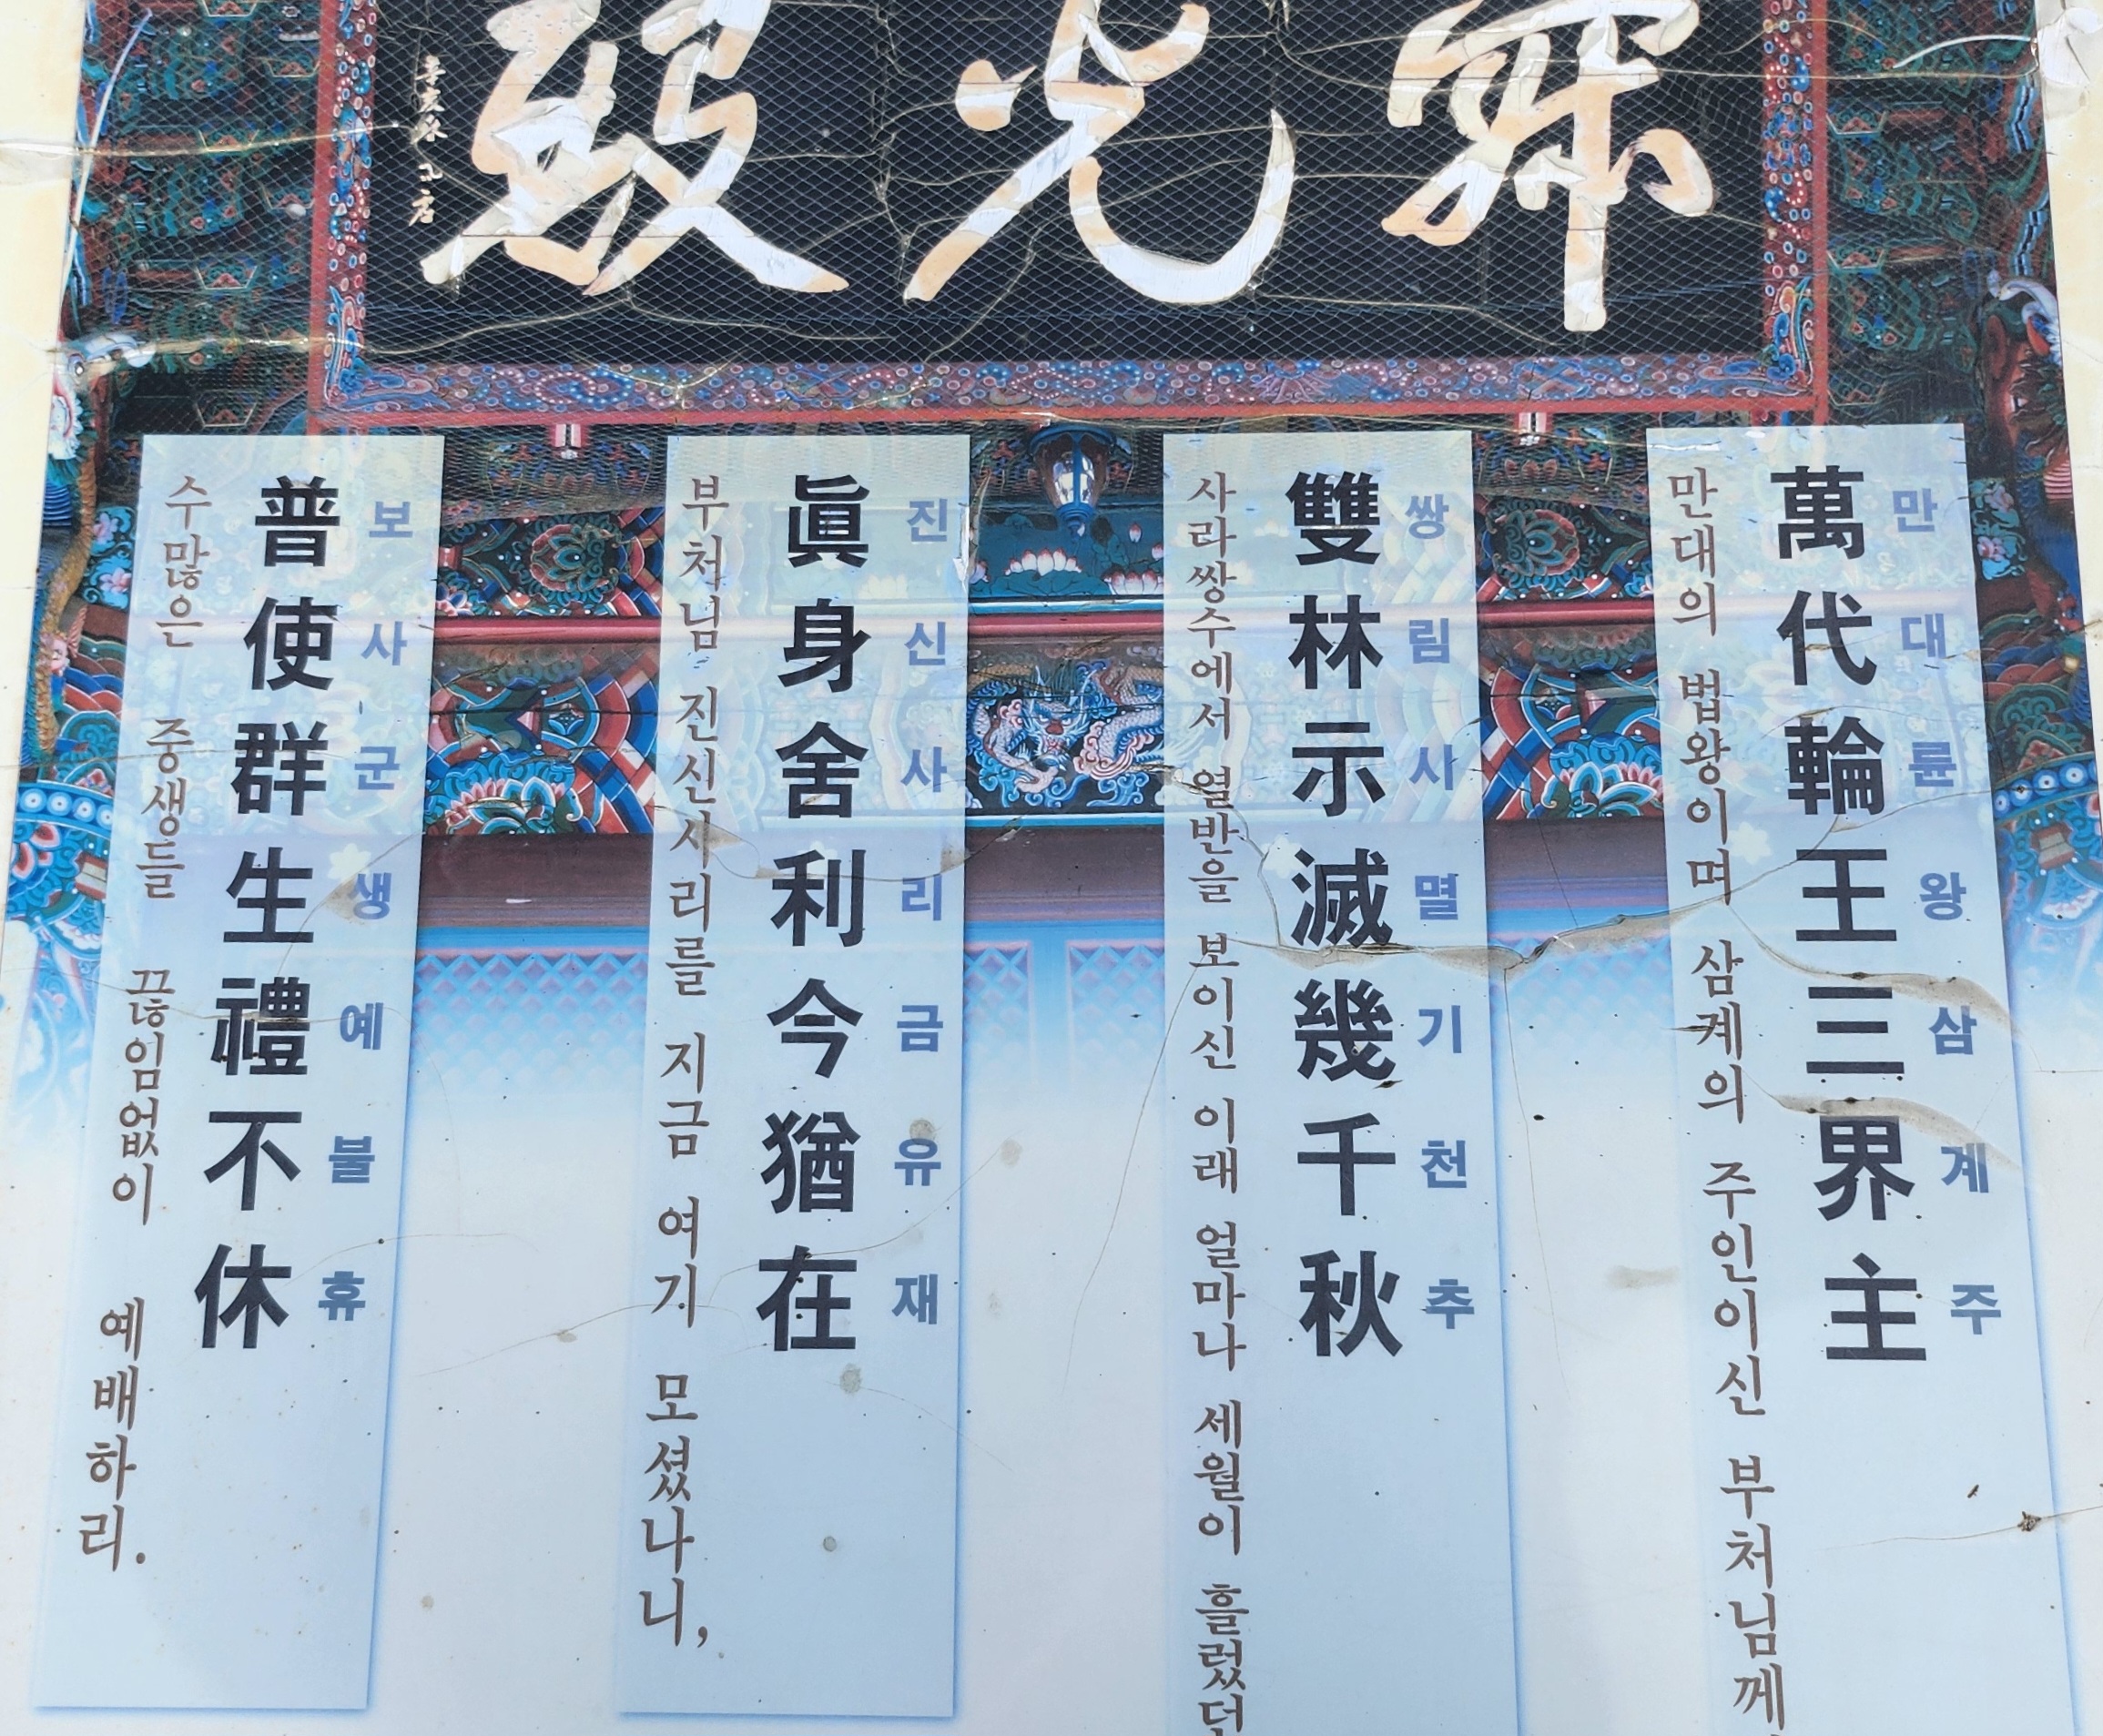 寂光殿
萬代輪王三界主
만대륜왕삼계주
만대의 법왕이며 삼계의 주인이신 부처님께
雙林示滅幾千秋
쌍림시멸기천추
사라쌍수에서 열반을 보이신 이래 얼마나 세월이 흘렀던
眞身舍利今猶在
진신사리금유재
부처님 진신사리를 지금 여기 모셨나니,
普使群生禮不休
보사군생예불휴
수많은 중생들 끊임없이 예배하리.